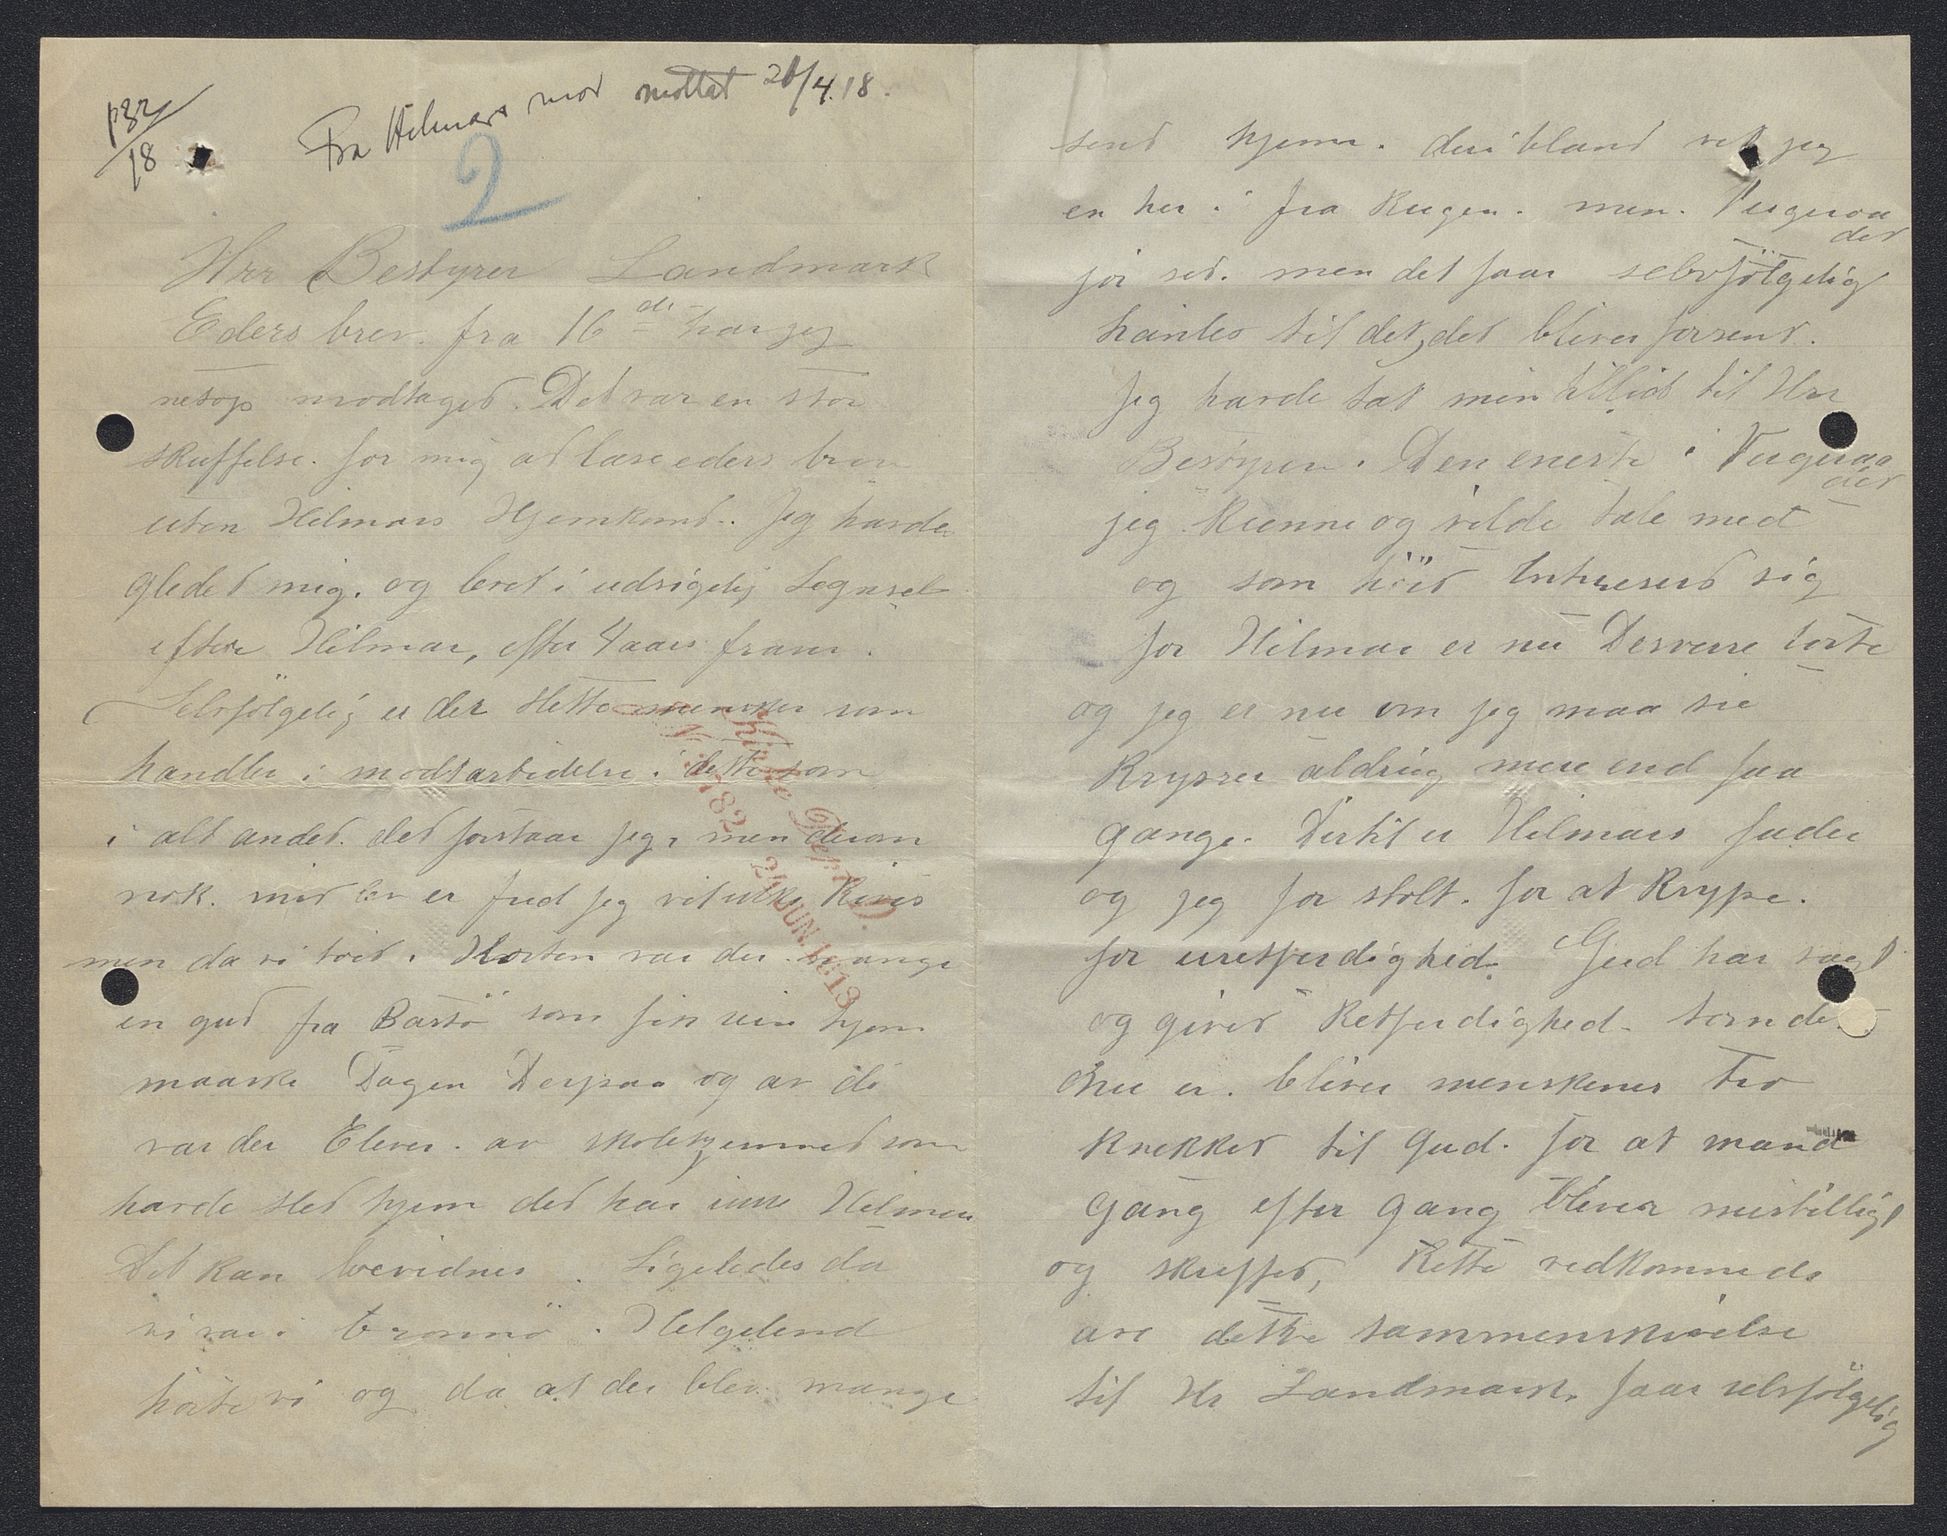 p 32/18
Fra Hilmars mor mottat 26/4.18.
2
Herr Bestyrer Landmark
Eders brev. fra 16 de har jeg
netop modtaget. Det var en stor
skuffelse. for mig at læse eders brev
uten Hilmars Hjemkomst.. Jeg havde
gledet mig. og levet i udsigelig Legnsel
eftere Hilmar, efter 4 aars fraver.
Selvfölgelig er der slette mensker som
handler i modtarbidelse. i dette som
i alt andet. det forstaar jeg, men derom
nok. mit er jeg vil ikke
men da vi i Horten var der mange
en gut fra Bastö som fik sin hjem
maaske Dagen Derpaa og av de
var der Elever. av skolehjemmet som
havde slet hjem det har ikke Hilmar
Det kan bevidnes. Ligeledes da
vi var i Brønnö. Helgelend
hörte vi og da at der blev mange
Kirke Dep. D.
N. 782
24 JUN. 1913
send hjem. deribland vet jeg
en her i fra Rugen. men.
der
jör set. men det faar selvfölgelig
hentes til det, det bliver forsent.
Jeg havde sat min tillid til Herr
Bestyrer. Den eneste i
der
jeg kunne og vilde tale med
og som Intreserd sig
for Hilmar er nu Desverre borte
og jeg er nu om jeg maa sie
Krysser aldrig mere end faa
gange. Dertil er Hilmars fader
og jeg for stolt. for at Krype.
for uretferdighed. Gud har sagt
og giver Retferdighed. som det
nu er. bliver menskenes Tro
knekket til Gud. for at mand
gang efter gang bliver misbilligt
og skuffet, Rette vedkommeds
are dette sammenskrivelse
til Hr Landmark. faar selvfölgelig